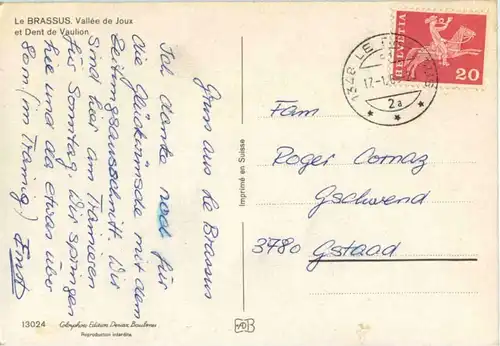 Le BRASSUS. Vallée de Joux
et Dent de Vaulion
Gruss aus Le Brassus
Ich danke noch für
die Glückwünsche mit dem
Zeitungsausschnitt. Wir
sind hier am Trainieren
für Sonntag. Wir springen
hie und da etwas über
80m (im Training)
Ernst
13024
Reproduction interdite
Imprimé en Suisse
HELVETIA
20
1348 LE
17-1
2a
Fam
Roger Cornaz
Gschwend
3780 Gstaad